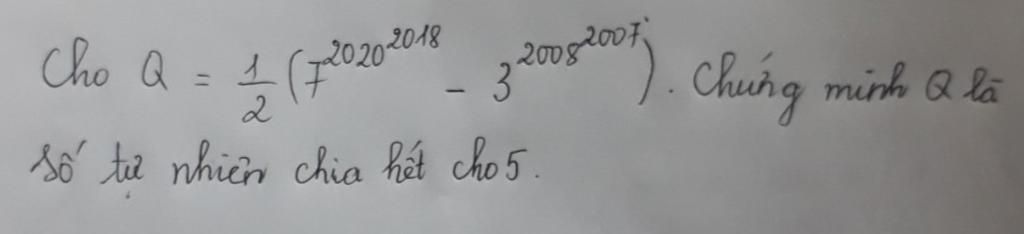 Cho Q = \frac{1}{2} (7^{2020^{2018}} - 3^{2008^{2007}}). Chứng minh Q là
số tự nhiên chia hết cho 5.